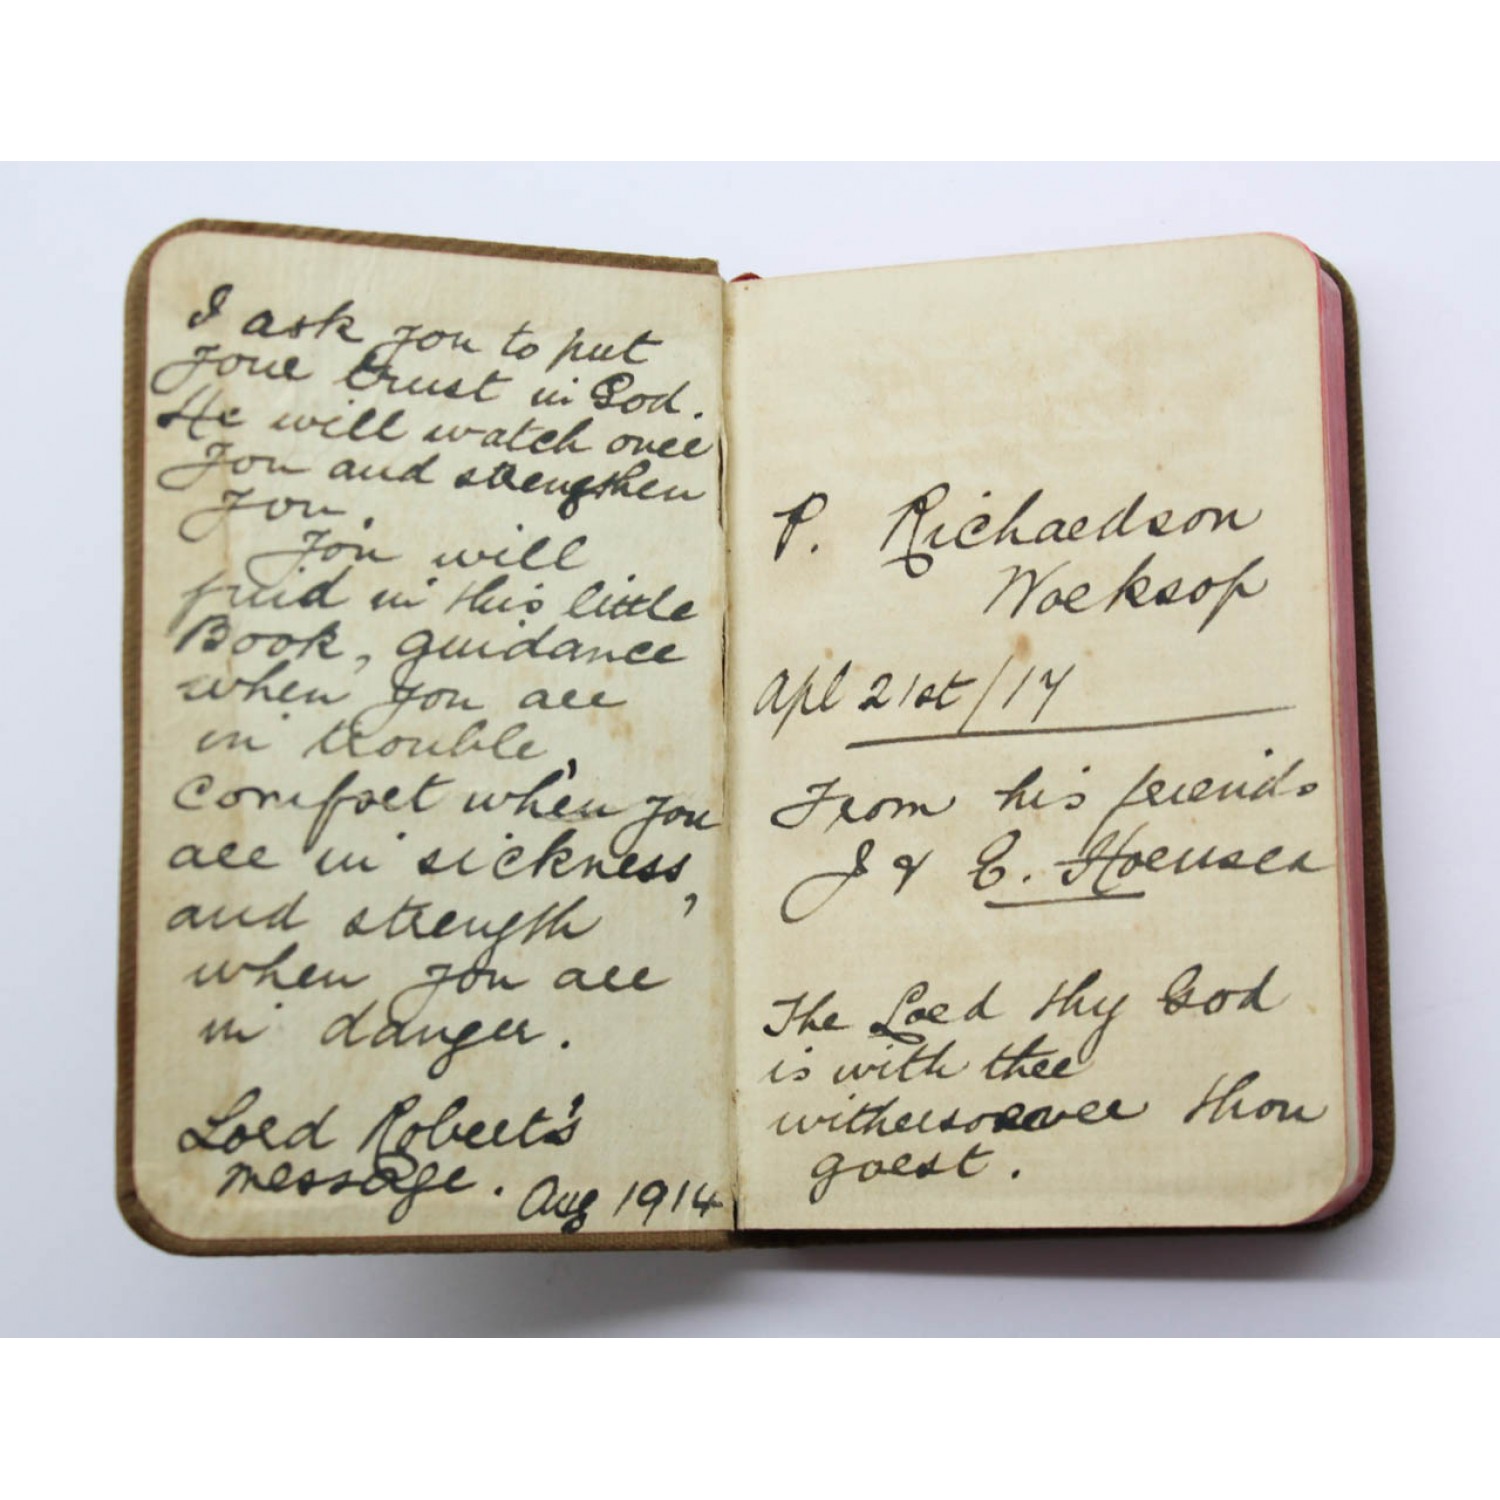 I ask you to put
your trust in God.
He will watch over
you and strengthen
you.
You will
find in this little
Book, guidance
when you are
in trouble,
Comfort when you
are in sickness,
and strength
when you are
in danger.
Lord Robert's
message. Aug 1914
P. Richardson
Worksop
Apl 21st/17
From his friends
J & E.
The Lord thy God
is with thee
withersoever thou
goest.